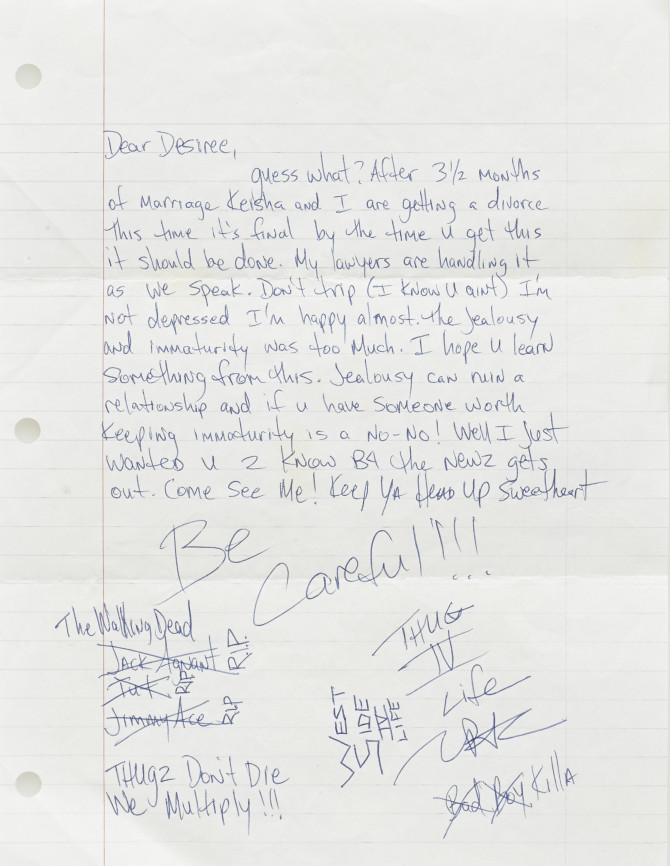 Dear Desiree,
guess what? After 3½ months
of Marriage Keisha and I are getting a divorce
This time it's final by the time u get this
it should be done. My lawyers are handling it
as we speak. Don't trip (I know u aint) I'm
not depressed I'm happy almost. The jealousy
and immaturity was too Much. I hope u learn
something from this. Jealousy can ruin a
relationship and if u have someone worth
keeping immaturity is a No-No! Well I just
wanted u 2 know B4 the Newz gets
out. Come See Me! Keep Ya Head Up Sweetheart
Be
Careful!!!
The Walking Dead
Jack Agnant R.I.P.
Tut RIP
Jimmy Ace RIP
THUGz Don't Die
We Multiply!!!
WEST
SIDE
4
LIFE
THUG
IV
Life
Bad Boy Killa